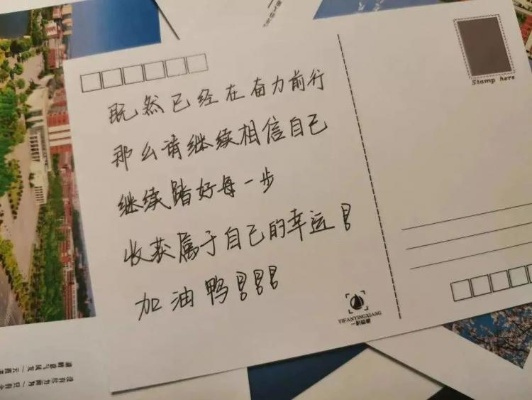 Stamp here
既然已经在奋力前行
那么请继续相信自己
继续踏好每一步
收获属于自己的幸运！
加油鸭！！！
YIFANYINGXIANG